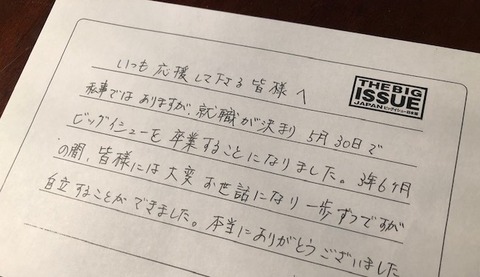 いつも応援して下さる皆様へ
THE BIG
ISSUE
JAPAN ビッグイシュー日本版
私事ではありますが、就職が決まり 5月30日で
ビッグイシューを卒業することになりました。3年6ヶ月
の間、皆様には大変お世話になり一歩ずつですが
自立することができました。本当にありがとうございました